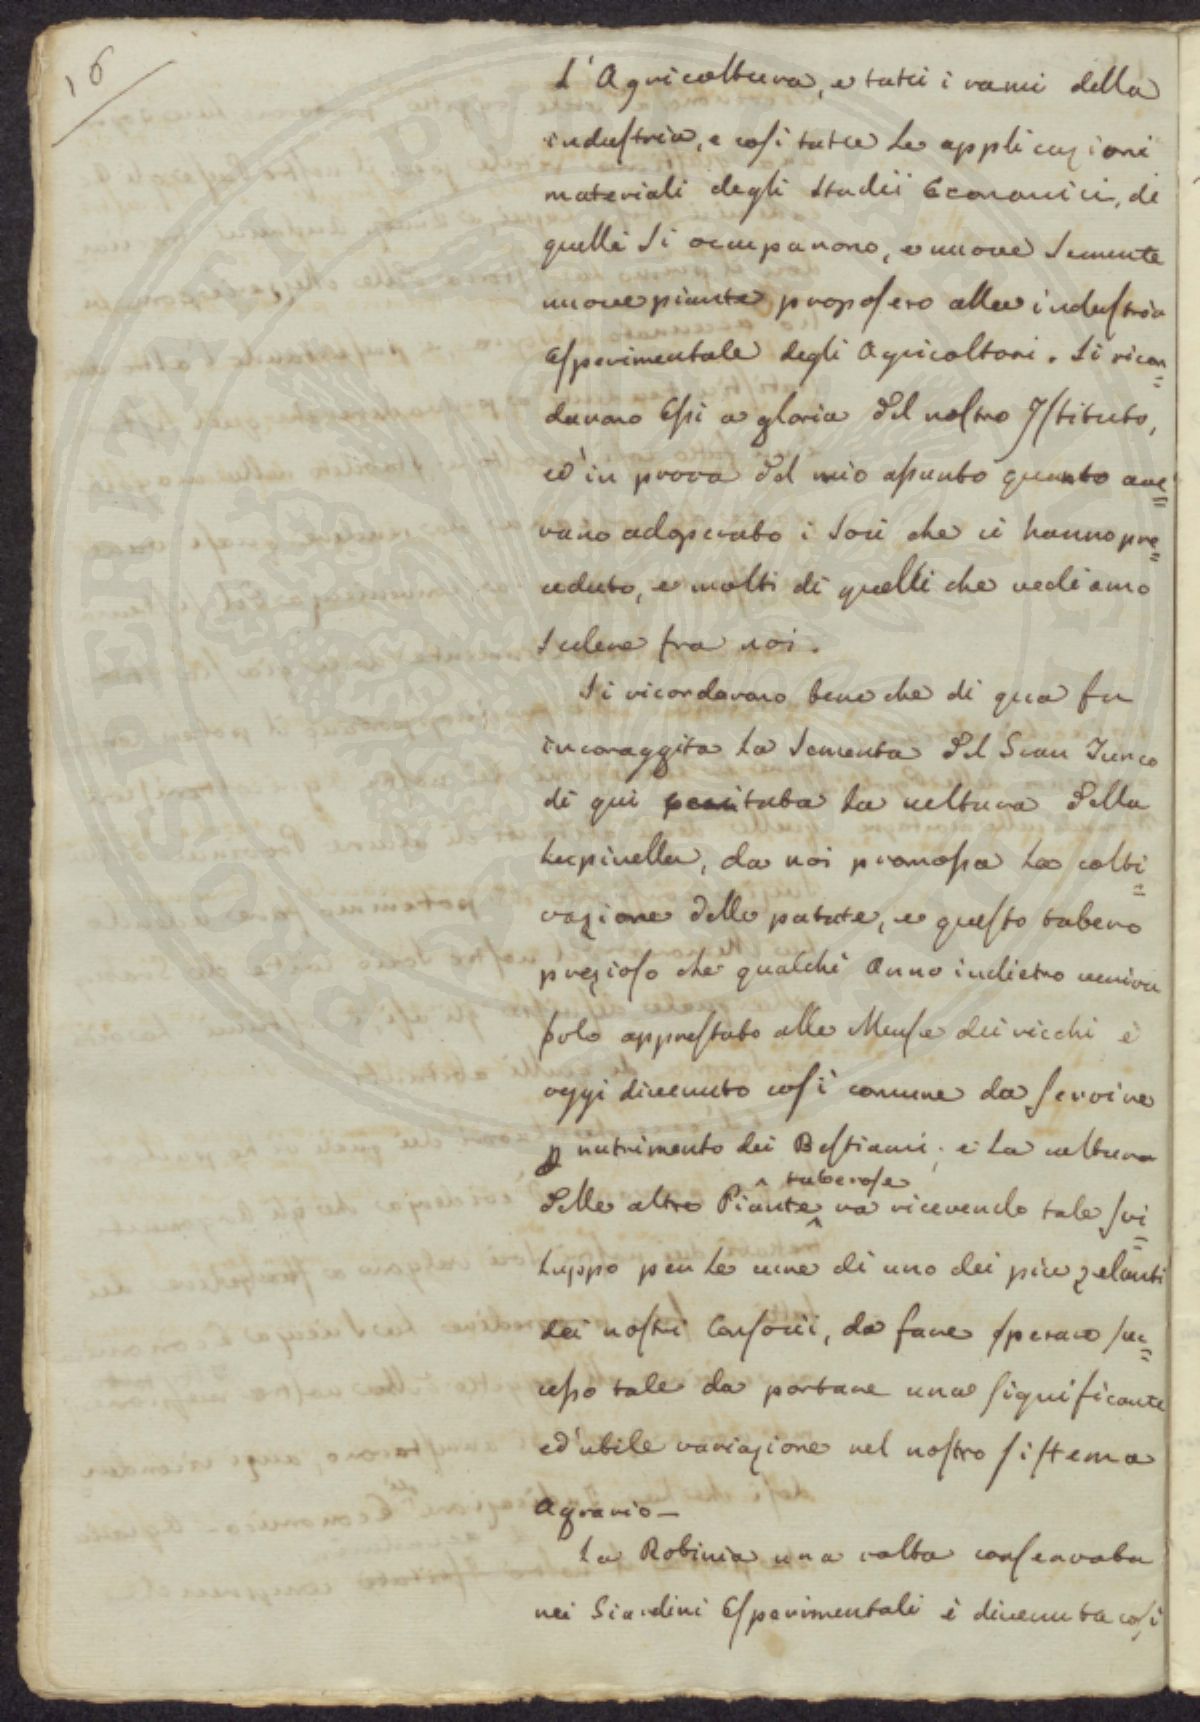 16
L'Agricoltura, e tutti i rami della
industria, e così tutte le applicazioni
materiali degli Studii Economici, di
quelli si occuparono, e nuove Semente
nuove piante proposero alla industria
Esperimentale degli Agricoltori. Si ricor=
darono Essi a gloria del nostro Istituto,
ed in prova del mio assunto quanto ave=
vano adoperato i Socii che ci hanno pre=
ceduto, e molti di quelli che vediamo
Sedere fra noi.
Si ricordarono bene che di qua fu
incoraggita la Sementa del Gran Turco
di qui tutta la cultura della
Lupinella, da noi promossa la colti=
vazione delle patate, e questo tubero
prezioso che qualchi Anno indietro veniva
solo apprestato alle Mense dei ricchi è
oggi divenuto così comune da servire
p nutrimento dei Bestiami; e la cultura
delle altre Piante tuberose va ricevendo tale svi=
luppo per le cure di uno dei più zelanti
dei nostri Consocii, da fare sperare suc=
cesso tale da portare una significante
ed utile variazione nel nostro sistema
Agrario_
La Robinia una volta conservata
nei Giardini Esperimentali è divenuta così